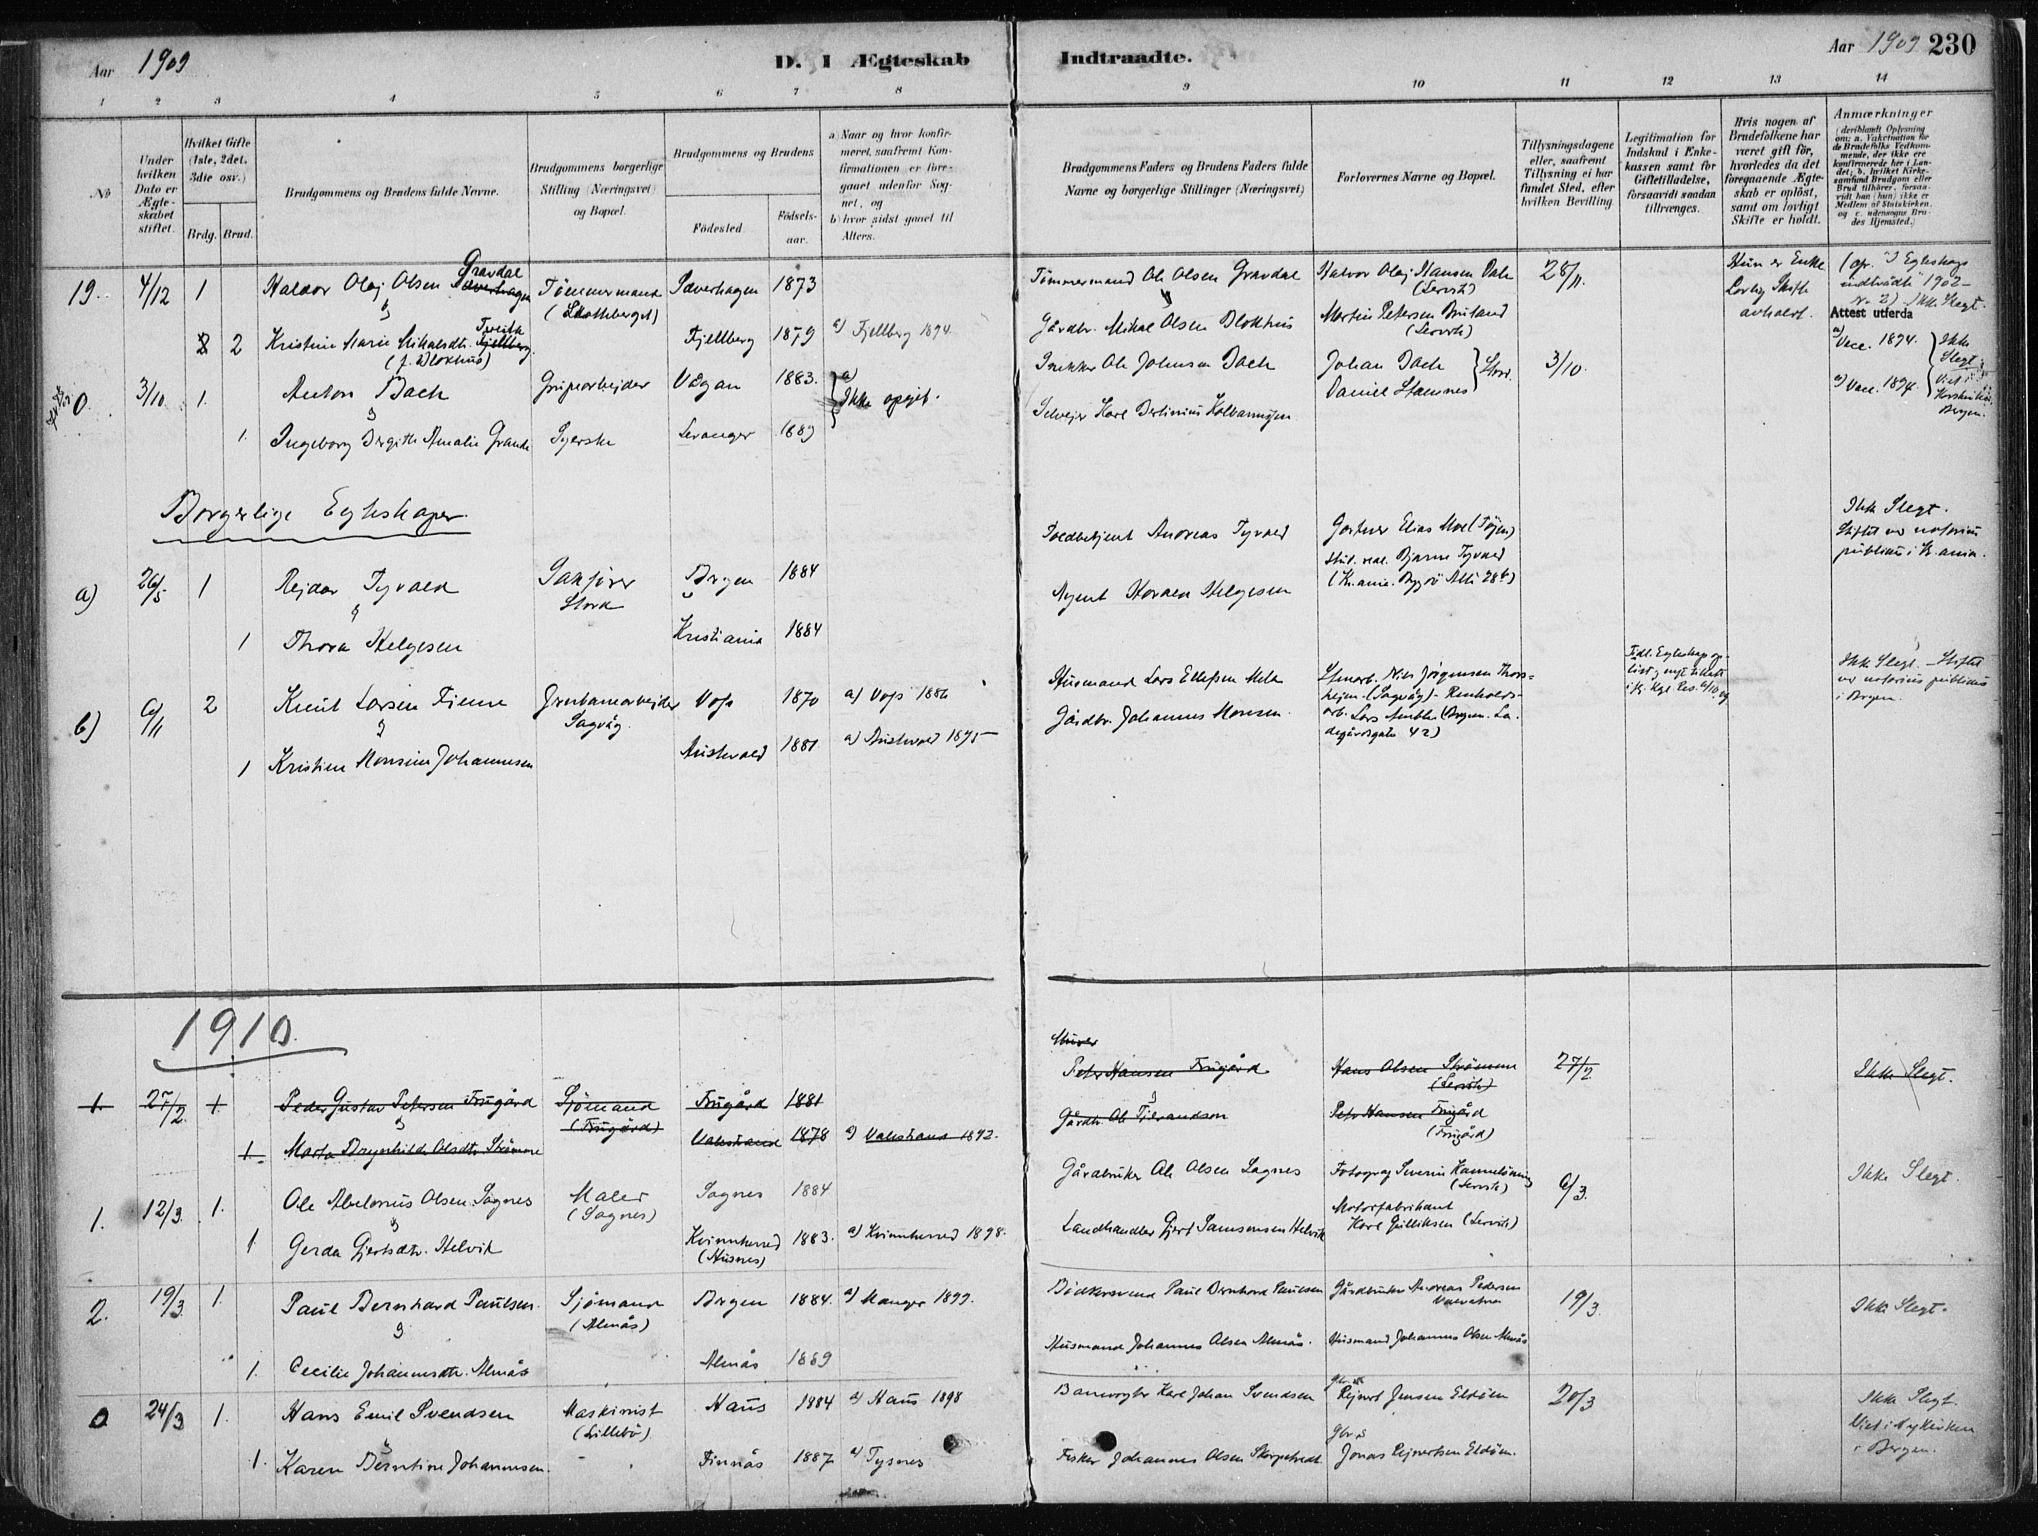 Aar 1909
D. I Ægteskab Indtraadte.
Aar 1909 230
1 2 3 4 5 6 7 8 9 10 11 12 13 14
No
Under hvilken Dato er Ægteskabet stiftet.
Hvilket Gifte (1ste, 2det, 3die osv.)
Brdg. Brud.
Brudgommens og Brudens fulde Navne.
Brudgommens borgerlige Stilling (Næringsvei) og Bopæl.
Brudgommens og Brudens
Fødested.
Fødselsaar.
a) Naar og hvor konfirmeret, saafremt Konfirmationen er foregaaet udenfor Sognet, og
b) hvor sidst gaaet til Alters.
Brudgommens Faders og Brudens Faders fulde Navne og borgerlige Stillinger (Næringsvei)
Forlovernes Navne og Bopæl.
Tillysningsdagene eller, saafremt Tillysning ei har fundet Sted, efter hvilken Bevilling.
Legitimation for Indskud i Enkekassen samt for Giftetilladelse, forsaavidt saadan tiltrænges.
Hvis nogen af Brudefolkene har været gift før, hvorledes da det foregaaende Ægteskab er opløst, samt om lovligt Skifte er holdt.
Anmærkninger
(deriblandt Oplysning om: a. Vakcination for de Brudefolks Vedkommende, der ikke ere konfirmerede her i Landet; b. hvilket Kirkesamfund Brudgom eller Brud tilhører, forsaavidt han (hun) ikke er Medlem af Statskirken, og c. udensogns Brudes Hjemsted.)
19. 4/12 1 Haldor Olaj Olsen Gravdal Tømmermand Sæverhagen 1873
Tømmermand Ole Olsen Gravdal Halvor Olaj Hansen Dale (Lervik) 28/11. Hun er Enke Lovlig Skifte avholdt.
2 Kristine Marie Mikalsdtr. (f. Blokhus) Fjellberg 1879 a) Fjellberg 1894.
Gårdbr. Mikal Olsen Blokhus Martin Petersen (Lervik) Attest utferda
0. 3/10. 1. Anton Bach Grubearbejder Vågan 1883. a) Ikke opgit.
Snekker Ole Johnsen Bach Johan Bach Daniel Stamnes Stord. 3/10 a) Vacc. 1894. Ikke Slegt
1. Ingeborg Birgitte Amalie Grande Syerske Levanger 1889
Selvejer Karl Bertinius Kolbannsen a) Vacc. 1894. Bergen.
Borgerlige Egteskaper.
a) 26/5 1 Rejdar Tyvold Sakfører Stord Bergen 1884
Toldbetjent Andreas Tyvold Gartner Elias Moe (Tøjen) Stud. real. Bjarne Tyvold (Kr.ania. Bygdø Allé 28b) Ikke Slegt. Stiftet ved notarius publicus i Kr.ania.
1 Thora Helgesen Kristiania 1884
Agent Halvor Helgesen
b) 6/11 2 Knut Larsen Finne Grubearbejder Sagvåg Voss 1870 a) Voss 1886
Husmand Lars Ellefsen Mele Stenarb. Nils Jørgensen Thorshejm (Sagvåg) - Renholdsarb. Lars (Bergen. Ladegårdsgate 42) Ikke Slegt. Stiftet ved notarius publicus i Bergen.
1 Kristine Monsine Johannesen Austevold 1881 a) Austevold 1895
Gårdbr. Johannes Monsen.
1910.
1. 27/2 1. Peder Gustav Petersen Frugård Sjømand (Frugård) Frugård 1881
Peter Hansen Frugård Hans Olsen Strømme (Lervik) 27/2 Ikke Slegt.
1. Marta Brynhilda Olsdtr. Strømme Valestrand 1878 a) Valestrand 1892.
Gårdbr. Ole Tjerandson Peter Hansen Frugård (Frugård)
1. 12/3. 1. Ole Abelonus Olsen Sagnes Maler (Sagnes) Sagnes 1884
Gårdbruker Ole Olsen Sagnes Fotograf Severin (Lervik) 6/3. Ikke Slegt.
1. Gerda Gjertsdtr. Helvik Kvinnherred (Husnes) 1883. a) Kvinnherred 1898.
Landhandler Gjert Samsonsen Helvik Motorfabrikant Karl Gulliksen (Lervik)
2. 19/3 1. Paul Bernhard Paulsen. Sjømand (Almås) Bergen 1884. a) Manger 1899.
Bødkersvend Paul Bernhard Paulsen Gårdbruker Andreas Pedersen Valvatne 19/3. Ikke Slegt.
1. Cecilie Johannesdtr. Almås Almås 1889
Husmand Johannes Olsen Almås. Husmand Johannes Olsen Almås
0 24/3 1. Hans Emil Svendsen Maskinist (Lillebø) Haus 1884 a) Haus 1898
Banevogter Karl Johan Svendsen Gbr. Rejnert Jensen Eldøen 20/3 Ikke Slegt. Viet i Nykirken i Bergen.
1. Karen Berntine Johannesen. Finnås 1887 a) Tysnes
Fisker Johannes Olsen Skorpetvedt Gbr. Jonas Rejnertsen Eldøen.